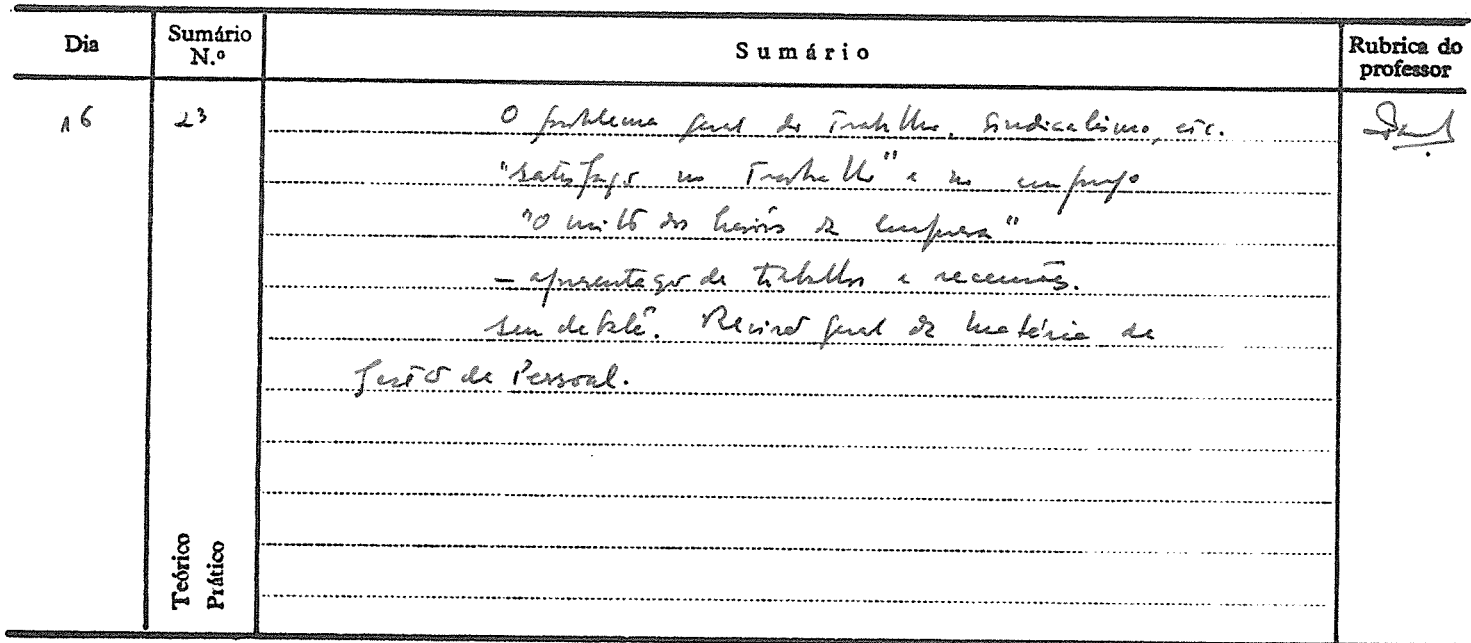 Dia
Sumário N.º
Sumário
Rubrica do professor
16
23
O problema geral do Trabalho, Sindicalismo, etc.
"Satisfação no Trabalho" e no emprego
"O mito dos heróis da empresa"
- apresentação de trabalhos e recensões.
Seu debate. Revisão geral da matéria de
Gestão de Pessoal.
Teórico
Prático